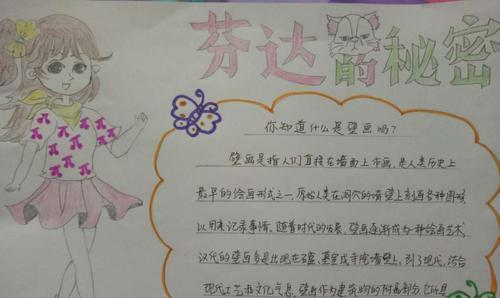 芬达的秘密
你知道什么是壁画吗?
壁画是指人们直接在墙面上作画,是人类历史上
最早的绘画形式之一,原始人类在洞穴的墙壁上刻画各种图形
以用来记录事情,随着时代的发展,壁画逐渐成为一种绘画艺术
汉代的壁画多是出现在石窟,墓室或寺院墙壁上,到了现代,结合
现代工艺和文化气息,壁画作为建筑物的附属部分